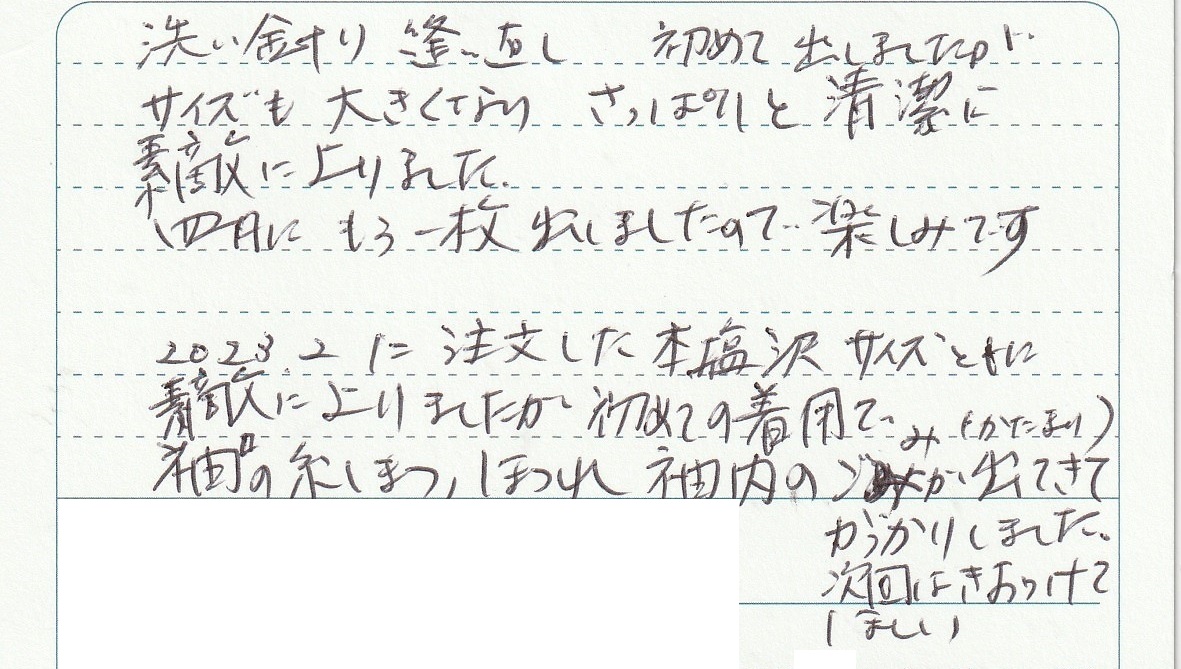 洗い針り 縫い直し 初めて出しましたが
サイズも 大きくなり さっぱりと清潔に
素敵に上りました。
四月に もう一枚出しましたので 楽しみです
2023.2に 注文した本塩沢 サイズともに
素敵に上りましたが 初めての着用で
袖口の糸しまつ、ほつれ 袖内のゴミ(かたまり)が出てきて
がっかりしました。
次回はきおつけて
ほしい